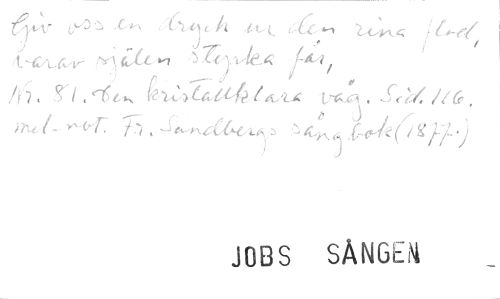 Giv oss en dryck ur den rena flod,
varav själen styrka får,
Nr. 81. Den kristallklara våg. Sid. 116.
mel-not. Fr. Sandbergs sångbok (1877.)
JOBS SÅNGEN